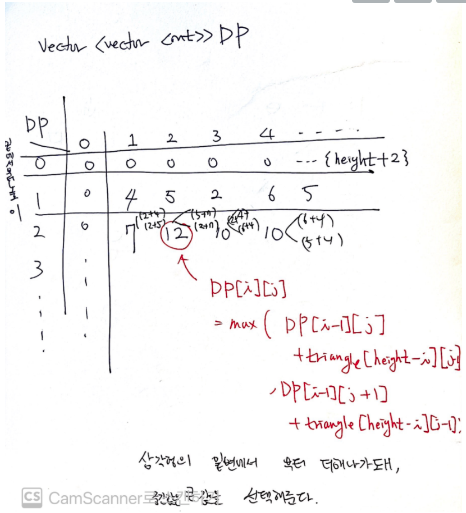 vector <vector <int>> DP
DP 0 1 2 3 4 .....
0 0 0 0 0 0 --- {height+2}
1 0 4 5 2 6 5
2 0 7 (2+4) (2+5) 12 (5+7) (2+7) 10 (6+4) 10 (6+4) (5+4)
3
DP[i][j]
= max ( DP[i-1][j]
+ triangle[height-i][j-1]
, DP[i-1][j+1]
+ triangle[height-i][j-1];
삼각형의 밑변에서 부터 더해나가되,
큰 값을 선택해준다.
CS CamScanner로